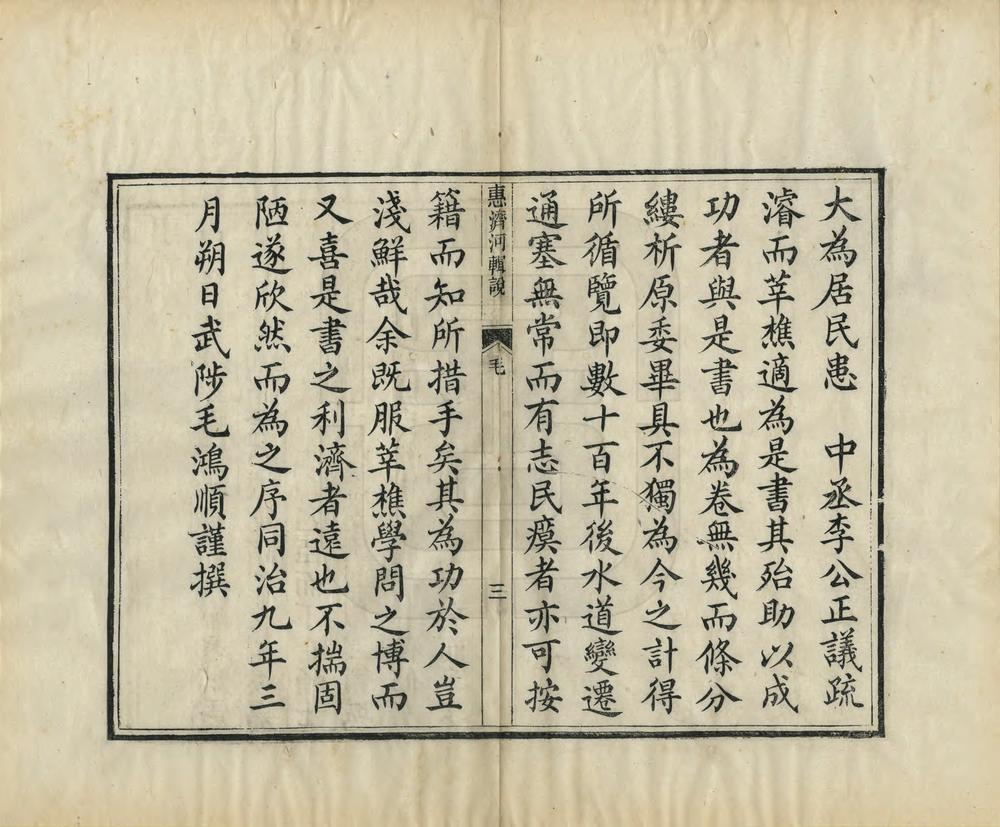 大為居民患　中丞李公正議疏
濬而莘樵適為是書其殆助以成
功者與是書也為卷無幾而條分
縷析原委畢具不獨為今之計得
所循覽即數十百年後水道變遷
通塞無常而有志民瘼者亦可按
惠濟河輯說
毛
三
籍而知所措手矣其為功於人豈
淺鮮哉余既服莘樵學問之博而
又喜是書之利濟者遠也不揣固
陋遂欣然而為之序同治九年三
月朔日武陟毛鴻順謹撰